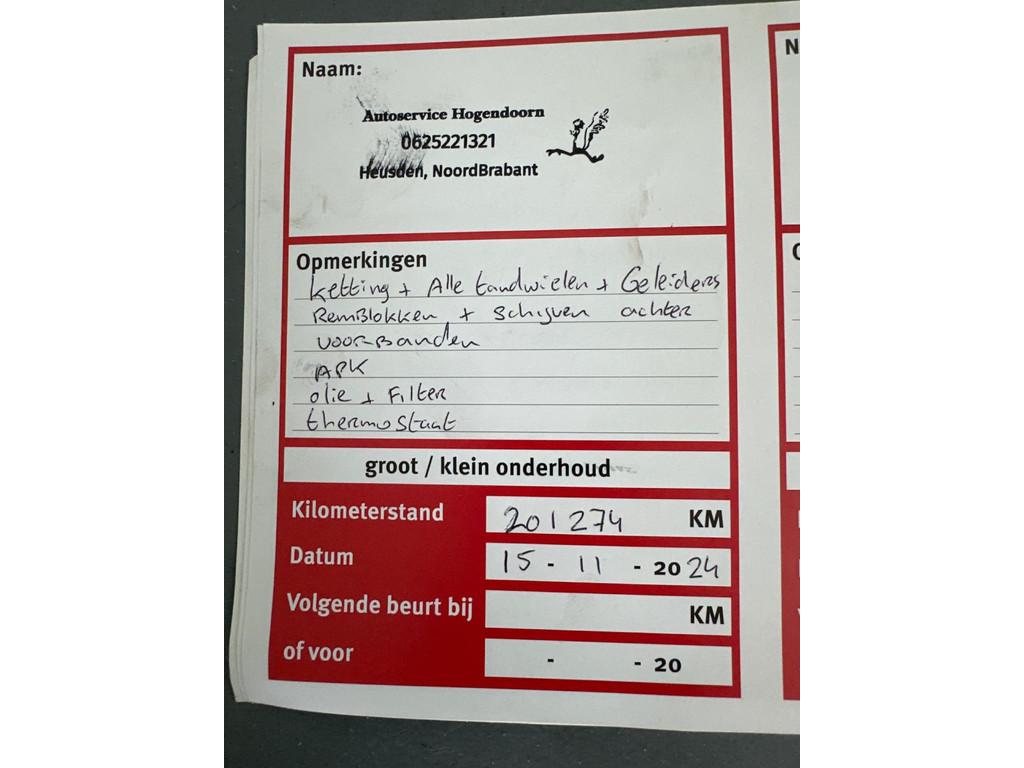 Naam:
Autoservice Hogendoorn
0625221321
Heusden, NoordBrabant
Opmerkingen
ketting + Alle tandwielen + Geleiders
RemBlokken + Schijven achter
voorBanden
APK
olie + Filter
thermostaat
groot / klein onderhoud
Kilometerstand 201274 KM
Datum 15 - 11 - 2024
Volgende beurt bij KM
of voor - - 20
N